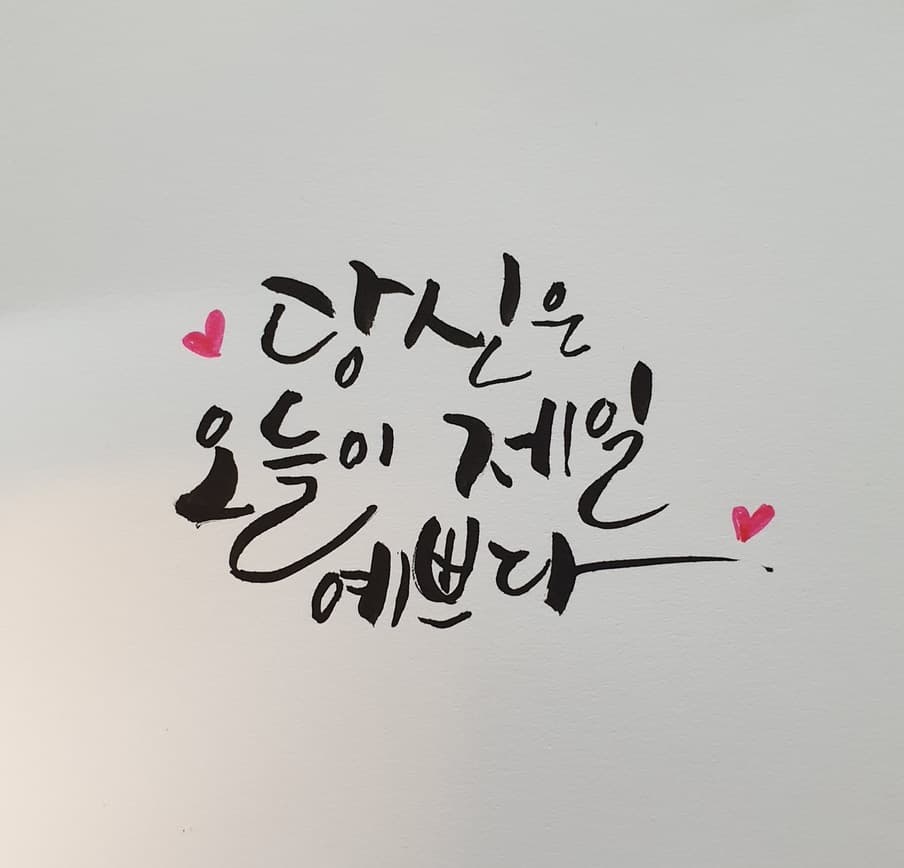 당신은
오늘이 제일
예쁘다.